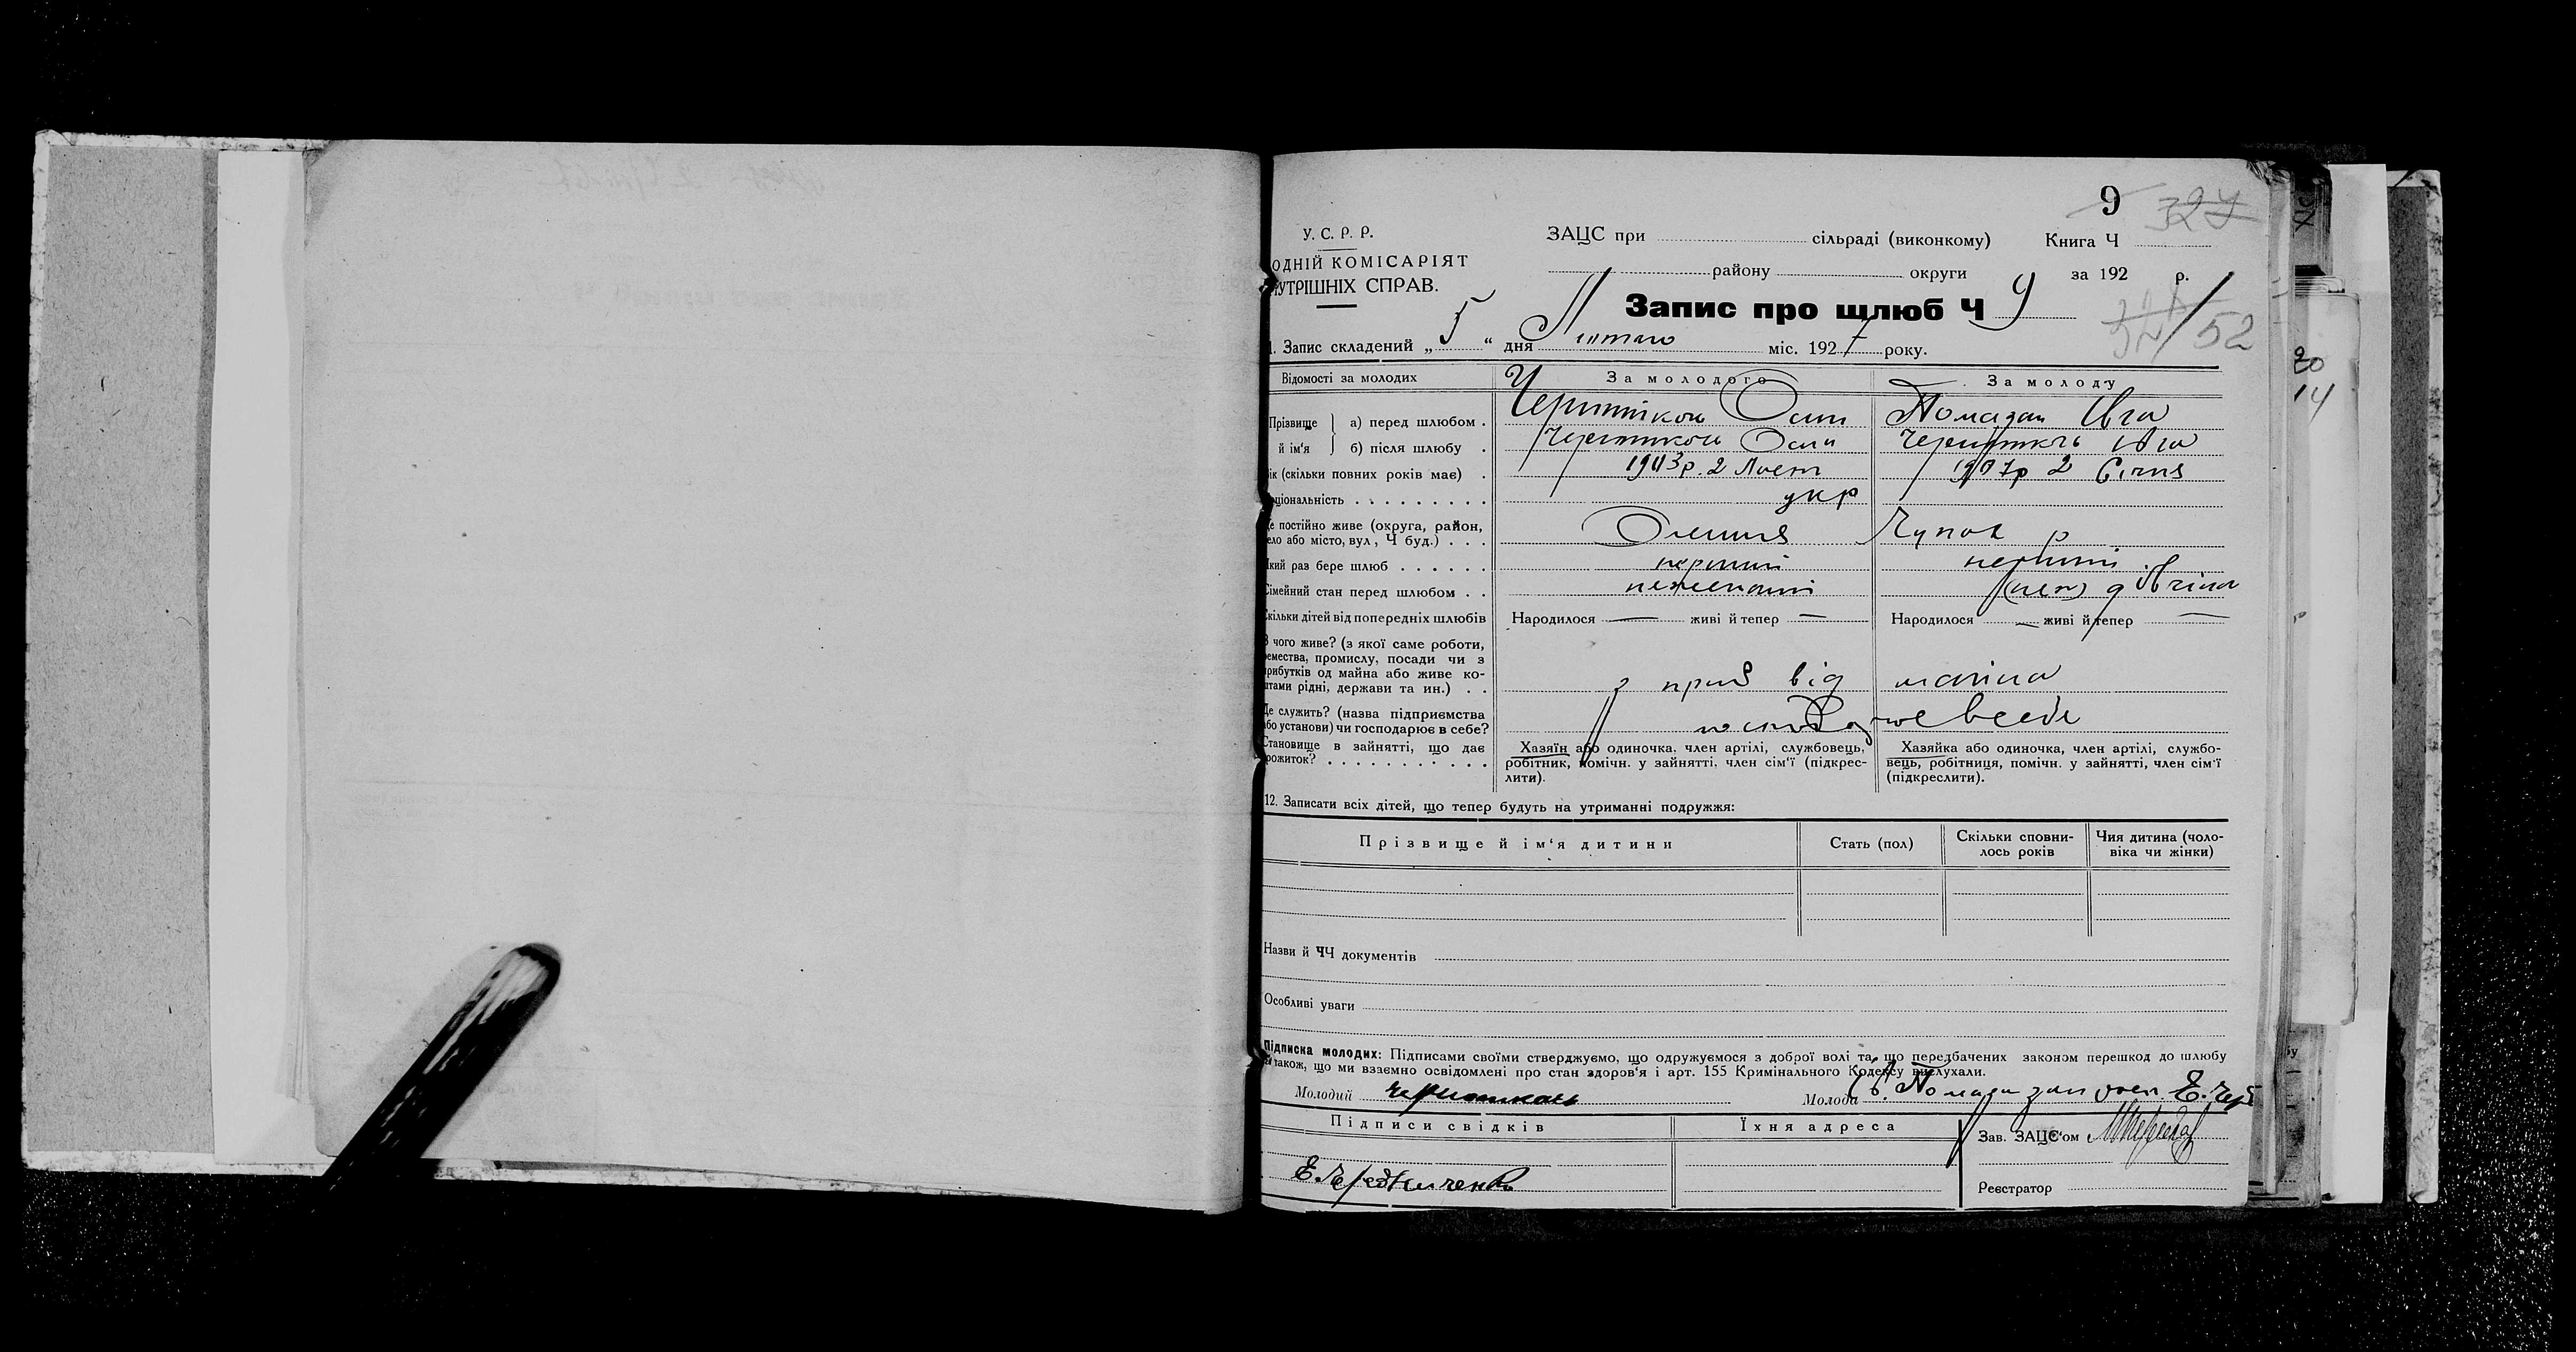 9 327
У. С. Р. Р.
ОДНІЙ КОМІСАРІЯТ
УТРІШНІХ СПРАВ.
ЗАЦС при сільраді (виконкому) Книга Ч
району округи за 192 р.
Запис про шлюб Ч 9
52
1. Запис складений „ 5 “ дня Лютаго міс. 1927 року.
Відомості за молодих За молодого За молоду
Прізвище й ім'я
а) перед шлюбом . Помазан
б) після шлюбу .
ік (скільки повних років має) . 1903р. 2 1907р 2 Січня
ціональність . . . . . . . . . укр
е постійно живе (округа, район,
ело або місто, вул., Ч буд.) . . . Олешня Чупах р
кий раз бере шлюб . . . . . . перший перший
Сімейний стан перед шлюбом . . нежонатий дівчина
кільки дітей від попередніх шлюбів Народилося — живі й тепер — Народилося — живі й тепер —
З чого живе? (з якої саме роботи,
емества, промислу, посади чи з
рибутків од майна або живе ко-
штами рідні, держави та ин.) . . з приб від майна
Де служить? (назва підприємства
або установи) чи господарює в себе?
Становище в зайнятті, що дає
рожиток? . . . . . . . . . . .
Хазяїн або одиночка, член артілі, службовець,
робітник, помічн. у зайнятті, член сім'ї (підкрес-
лити).
Хазяйка або одиночка, член артілі, службо-
вець, робітниця, помічн. у зайнятті, член сім'ї
(підкреслити).
12. Записати всіх дітей, що тепер будуть на утриманні подружжя:
Прізвище й ім'я дитини Стать (пол) Скільки сповни-
лось років Чия дитина (чоло-
віка чи жінки)
Назви й ЧЧ документів
Особливі уваги
Підписка молодих: Підписами своїми стверджуємо, що одружуємося з доброї волі та що передбачених законом перешкод до шлюбу
також, що ми взаємно освідомлені про стан здоров'я і арт. 155 Кримінального Кодексу вислухали.
Молодий Молода
Підписи свідків Їхня адреса Зав. ЗАЦС'ом
Е. Чередниченко
Реєстратор
20
14